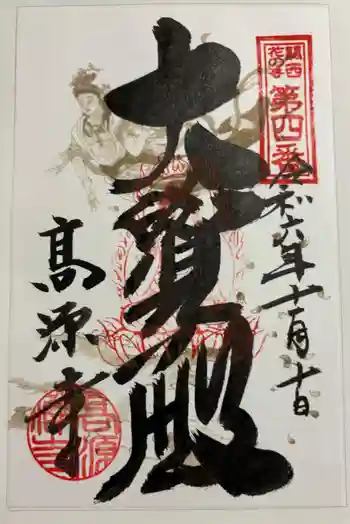 関西
花の寺
第四番
令和六年十一月十日
大寳殿
高源寺
高源
禅寺